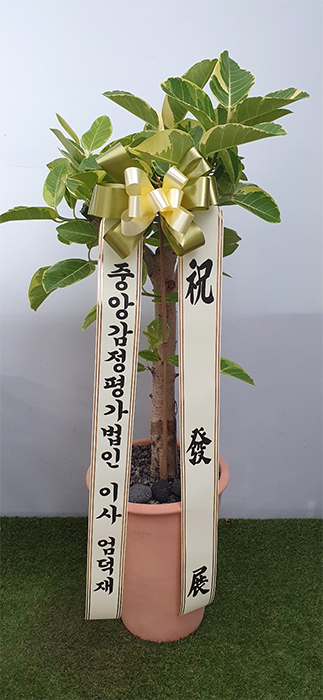 중앙감정평가법인 이사 엄덕재
祝發展